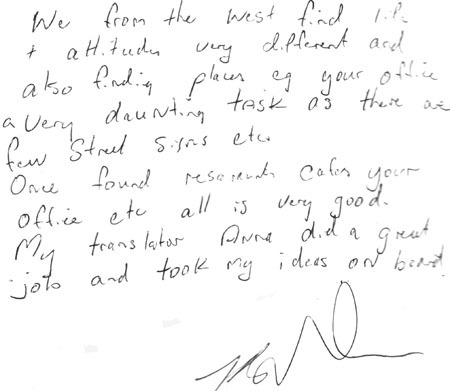 We from the west find life
+ attitudes very different and
also finding places eg your office
a very daunting task as there are
few street signs etc.
Once found restaurants cafes your
office etc all is very good.
My translator Anna did a great
job and took my ideas on board